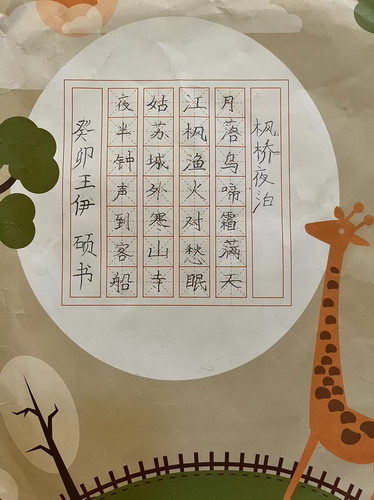 枫桥夜泊
月落乌啼霜满天
江枫渔火对愁眠
姑苏城外寒山寺
夜半钟声到客船
癸卯王伊硕书